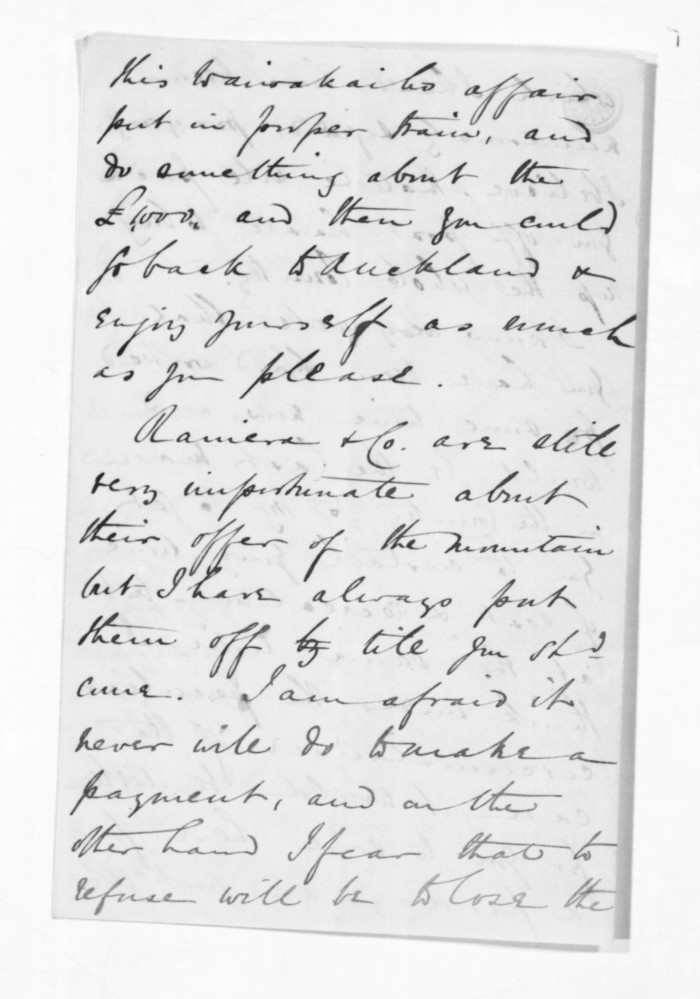 this Waiwakaiho affair
put in proper train, and
do something about the
£1,000,, and then you could
go back to Auckland &
enjoy yourself as much
as you please.
Raniera & Co. are still
very importunate about
their offer of the mountain
but I have always put
them off by till you shd
come. I am afraid it
never will do to make a
payment, and on the
other hand I fear that to
refuse will be to lose the